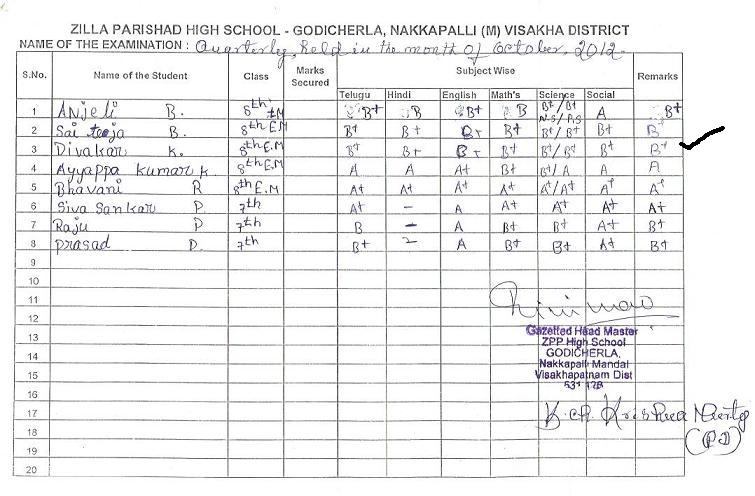 ZILLA PARISHAD HIGH SCHOOL - GODICHERLA, NAKKAPALLI (M) VISAKHA DISTRICT
NAME OF THE EXAMINATION : Quarterly, held in the month of October, 2012.
S.No. Name of the Student Class Marks Secured Subject Wise Remarks
Telugu Hindi English Math's Science Social
N.S/P.S
1 Anjeli B. 8th EM B+ B B+ B B+/B+ A B+
2 Sai teja B. 8th E.M B+ B+ B+ B+ B+/B+ B+ B+
3 Divakar K. 8th E.M B+ B+ B+ B+ B+/B+ B+ B+
4 Ayyappa Kumar K. 8th E.M A A A+ B+ B+/A A A
5 Bhavani R 8th E.M A+ A+ A+ A+ A+/A+ A+ A+
6 Siva Sankar P. 7th A+ - A A+ A+ A+ A+
7 Raju P 7th B - A B+ B+ A+ B+
8 Prasad D. 7th B+ - A B+ B+ A+ B+
9
10
11
12
13
14
15
16
17
18
19
20
Gazetted Head Master
ZPP High School
GODICHERLA,
Nakkapalli Mandal
Visakhapatnam Dist
K.ch. Krishna
(PD)